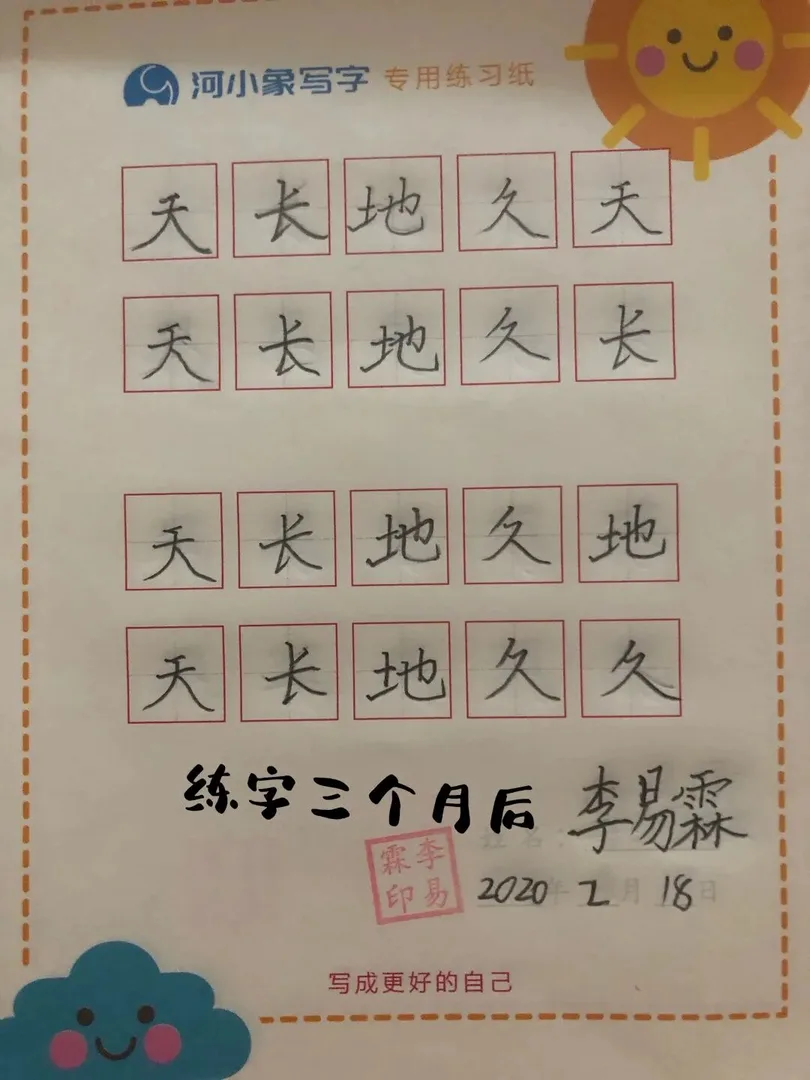 河小象写字 专用练习纸
天长地久天
天长地久长
天长地久地
天长地久久
练字三个月后 李易霖
姓名：
李易霖印
2020年2月18日
写成更好的自己